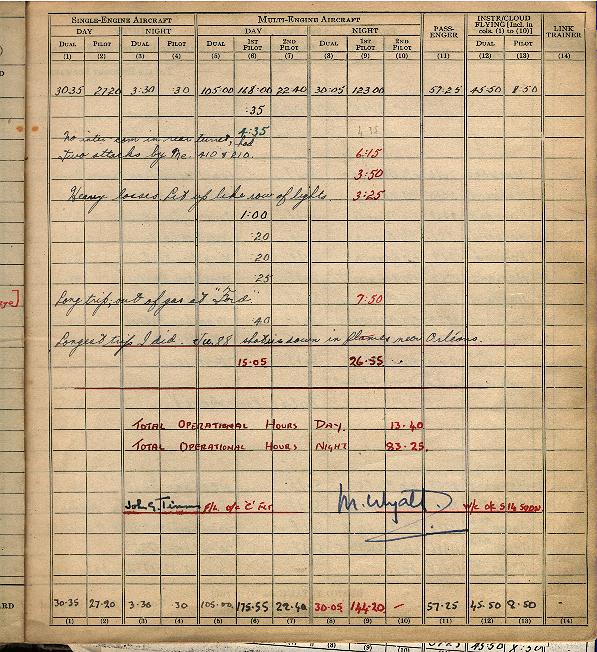 SINGLE-ENGINE AIRCRAFT MULTI-ENGINE AIRCRAFT PASS-ENGER INSTR/CLOUD FLYING [Incl. in cols. (1) to (10)] LINK TRAINER
DAY NIGHT DAY NIGHT
DUAL PILOT DUAL PILOT DUAL 1ST PILOT 2ND PILOT DUAL 1ST PILOT 2ND PILOT DUAL PILOT
(1) (2) (3) (4) (5) (6) (7) (8) (9) (10) (11) (12) (13) (14)
30.35 27.20 3:30 .30 105.00 168.00 22.40 30.05 123.00 57.25 45.50 8.50
:35
4:35
No inter com in rear turret, had
Two attacks by Me. 410 & 210. 6:15
3:50
Heavy losses Lit up like row of lights 3:25
1:00
:20
:20
:25
Long trip, out of gas at "Ford" 7:50
:40
Longest trip I did. Ju.88 down in flames near Orléans.
15.05 26.55
TOTAL OPERATIONAL HOURS DAY. 13.40
TOTAL OPERATIONAL HOURS NIGHT 83.25.
John G. Timms F/L. o/c 'C' FLT M. Wyatt W/C o/c 514 SQDN.
30.35 27.20 3.30 .30 105.00 175.55 22.40 30.05 144.20 - 57.25 45.50 8.50 -
(1) (2) (3) (4) (5) (6) (7) (8) (9) (10) (11) (12) (13) (14)
45.50 8.50